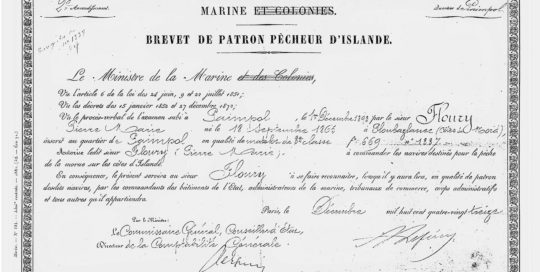 2e Arrondissement.
Quartier de Paimpol
MARINE ET COLONIES.
BREVET DE PATRON PÊCHEUR D'ISLANDE.
Le Ministre de la Marine et des Colonies,
Vu l'article 6 de la loi des 24 juin, 9 et 22 juillet 1851;
Vu les décrets des 15 janvier 1852 et 27 décembre 1872;
Vu le procès-verbal de l'examen subi à Paimpol le 1er Décembre 1893 par le sieur Floury
Pierre Marie né le 18 Septembre 1866 à Ploubazlanec (Côtes du Nord)
inscrit au quartier de Paimpol en qualité de matelot de 3e classe f° 669 n° 1337
Autorise ledit sieur Floury (Pierre Marie) à commander les navires destinés pour la pêche
de la morue sur les côtes d'Islande.
En conséquence, le présent servira au sieur Floury à se faire reconnaître, lorsqu'il y aura lieu, en qualité de patron
desdits navires, par les commandants des bâtiments de l'État, administrateurs de la marine, tribunaux de commerce, corps administratifs
et tous autres qu'il appartiendra.
Paris, le Décembre mil huit cent quatre-vingt treize
Par le Ministre:
Le Commissaire Général, Conseiller d'État
Directeur de la Comptabilité Générale